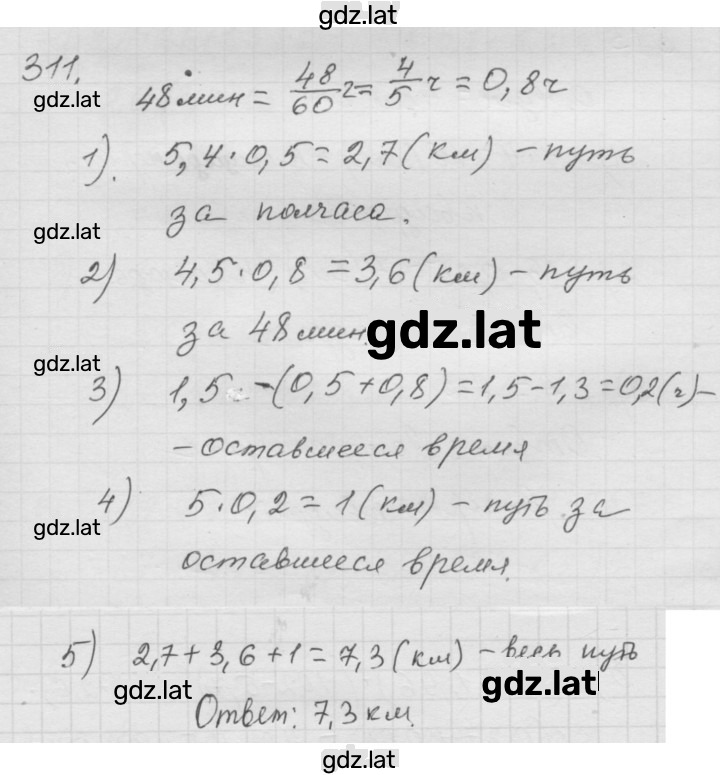 gdz.lat
311.
gdz.lat
48 мин = 48/60 ч = 4/5 ч = 0,8 ч
1). 5,4 · 0,5 = 2,7 (км) – путь
за полчаса.
gdz.lat
2) 4,5 · 0,8 = 3,6 (км) – путь
за 48 мин.
gdz.lat
gdz.lat
3) 1,5 – (0,5 + 0,8) = 1,5 – 1,3 = 0,2 (ч) –
– оставшееся время
4) 5 · 0,2 = 1 (км) – путь за
gdz.lat
оставшееся время.
5) 2,7 + 3,6 + 1 = 7,3 (км) – весь путь
gdz.lat
gdz.lat
Ответ: 7,3 км.
gdz.lat